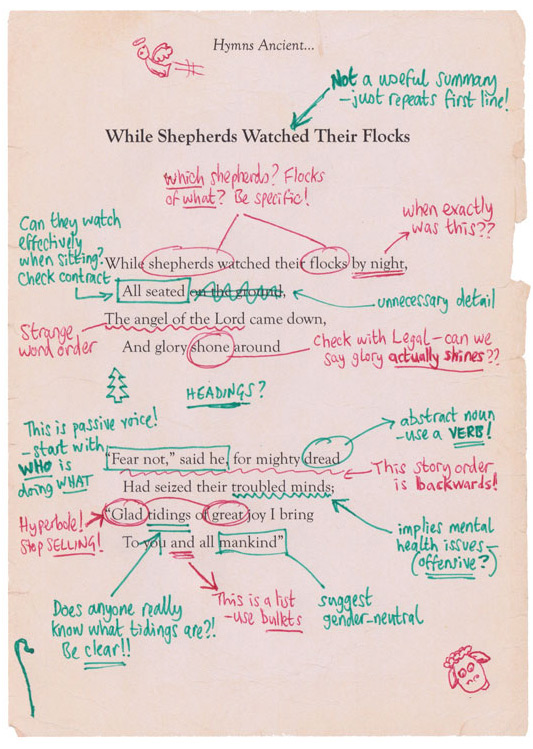 Hymns Ancient...
Not a useful summary
– just repeats first line!
While Shepherds Watched Their Flocks
Which shepherds? Flocks
of what? Be specific!
when exactly
was this??
Can they watch
effectively
when sitting?
Check contract
While shepherds watched their flocks by night,
All seated on the ground,
unnecessary detail
The angel of the Lord came down,
Strange
word order
And glory shone around
Check with Legal – can we
say glory actually shines??
HEADINGS?
This is passive voice!
– start with
WHO is
doing WHAT
abstract noun
– use a VERB!
"Fear not," said he, for mighty dread
This story order
is backwards!
Had seized their troubled minds;
"Glad tidings of great joy I bring
Hyperbole!
Stop SELLING!
implies mental
health issues –
(offensive?)
To you and all mankind"
Does anyone really
know what tidings are?!
Be clear!!
This is a list
– use bullets
suggest
gender-neutral